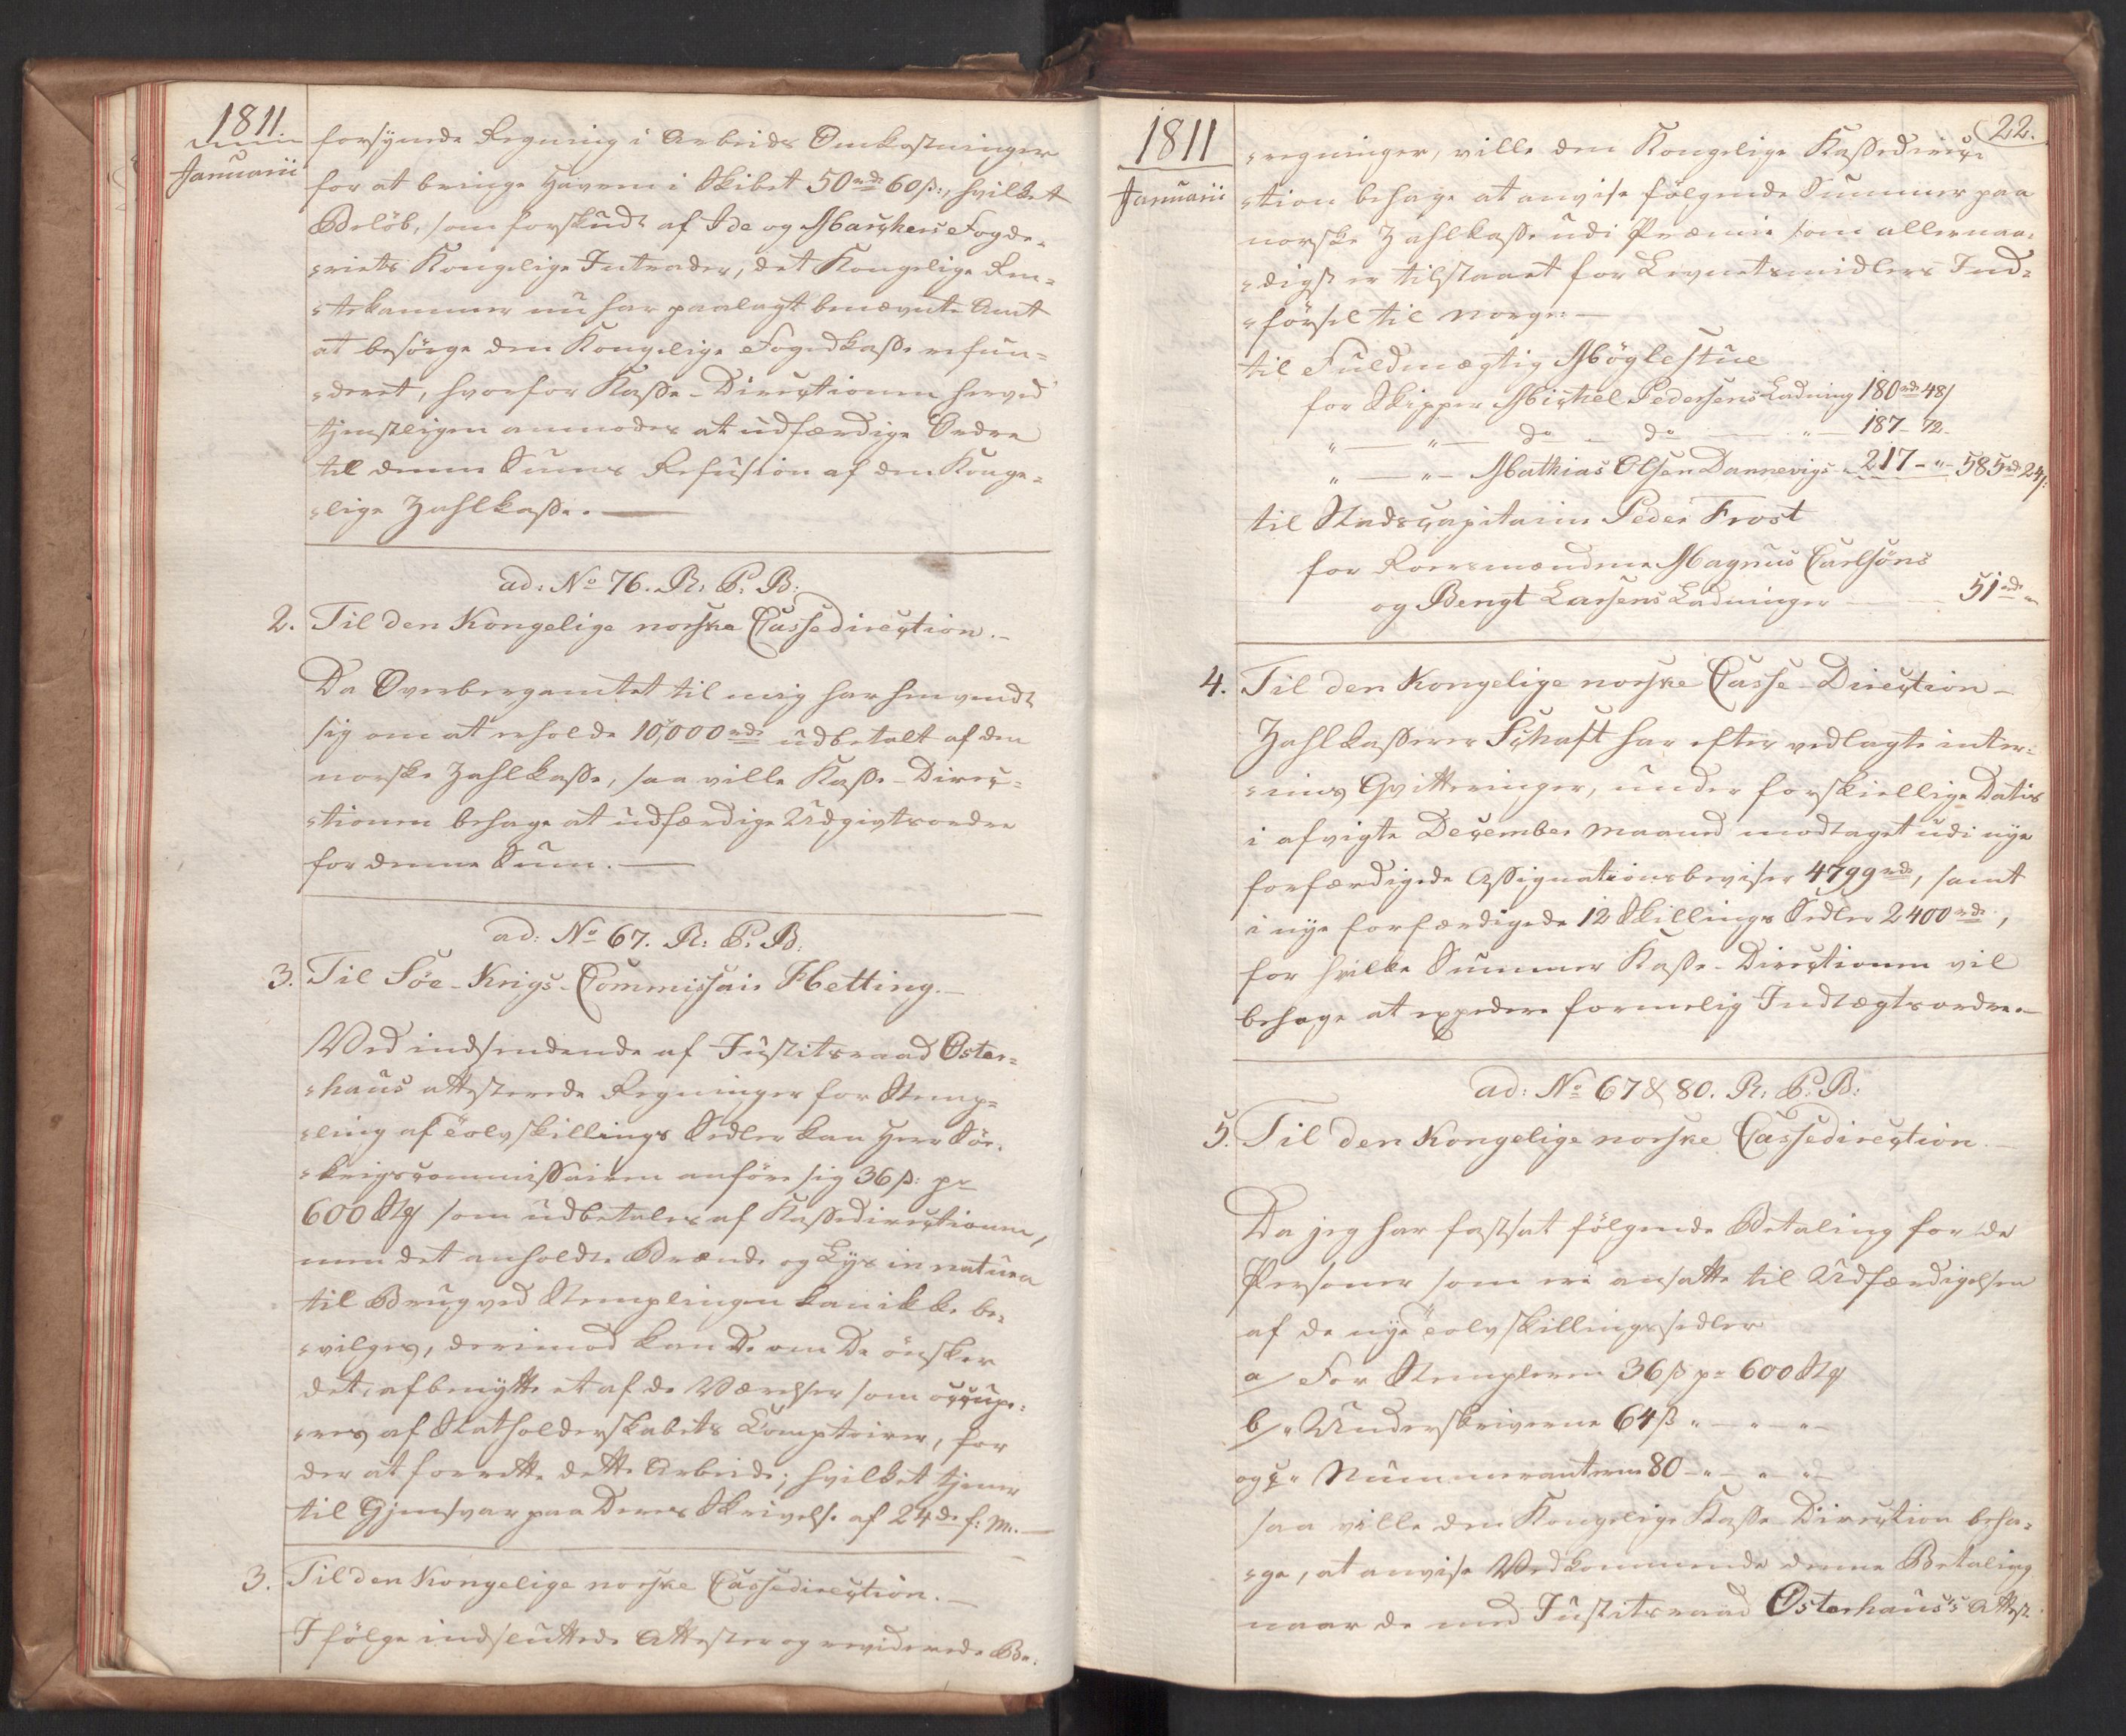 1811.
Januarii
forsynede Regning i Arbeids Omkostninger
for at bringe Havren i Skibet 50 rd 60 ß:, hvilket
Beløb, som forskudt af Ide og Markers Fogde-
=riets Kongelige Intrader, det Kongelige Ren=
=tekammer nu har paalagt benævnte Amt
at besørge den Kongelige Fogedkasse refun=
=deret, hvorfor Kasse-Directionen herved
tjenstligen anmodes at udfærdige Ordre
til denne Sums Refusion af den Konge=
=lige Zahlkasse.
ad: No 76. R: P: B:
2. Til den Kongelige norske Cassedirection.-
Da Overbergamtet til mig har henvendt
sig om at erholde 10,000 rd udbetalt af den
norske Zahlkasse, saa ville Kasse-Direc=
=tionen behage at udfærdige Udgivtsordre
for denne Sum.
ad: No 67. R: P: B:
3. Til Söe-Krigs-Commissair Hetting.-
Ved indsendende af Justitsraad Oster=
=haus attesterede Regninger for Stemp=
=ling af tolvskillings Sedler kan Herr Söe-
=krigscommissairen anføre sig 36 ß: pr
600 Stk som udbetales af Kassedirectionen,
men det anholdte Brænde og Lys in natura
til Brug ved Stemplingen kan ikke be=
=vilges, derimod kan De om De ønsker
det, afbenytte et af de Værelser som occupe=
=res af Statholderskabets Comptoirer, for
der at forrette dette Arbeide; hvilket tjener
til Gjensvar paa Deres Skrivelse af 24de f: M.-
3. Til den Kongelige norske Cassedirection.-
I følge indsluttede Attester og reviderede Be=
22.
1811
Januarii
=regninger, ville den Kongelige Kassedirec=
=tion behage at anvise følgende Summer paa
norske Zahlkasse udi Præmie som allernaa=
=digst er tilstaaet for Levnetsmidlers Ind=
=førsel til Norge:
til Fuldmægtig Möglestue
for Skipper Michel Pedersens Ladning 180 rd 48 ß
" — " — do — do — " — 187 - 72 -
" — " — Mathias Olsen Dannevigs - 217 - " - 585 rd 24 ß:
til Stadscapitain Peder Frost
for Roersmændene Magnus Carlsöns
og Bengt Larsens Ladninger — 51 rd "
4. Til den Kongelige norske Casse-Direction-
Zahlkasserer Schaft har efter vedlagte inter=
=ims Qvitteringer, under forskiellige Datis
i afvigte December Maaned modtaget udi nye
forfærdigede Assignationsbeviser 4799 rd, samt
i nye forfærdigede 12 Skillings Sedler 2400 rd,
for hvilke Summer Kasse-Directionen vil
behage at expedere formelig Indtægtsordre.-
ad: No 67 & 80. R: P: B:
5. Til den Kongelige norske Cassedirection.-
Da jeg har fastsat følgende Betaling for de
Personer som ere ansatte til Udfærdigelsen
af de nye tolvskillingssedler
a/ For Stempleren 36 ß pr 600 Stk
b/ " Underskriverne 64 ß " — " — "
og c " Nummeranterne 80 - " — " — "
saa ville den Kongelige Kasse Direction beha=
=ge, at anvise Vedkommende denne Betaling
naar de med Justitsraad Osterhaus's Attest